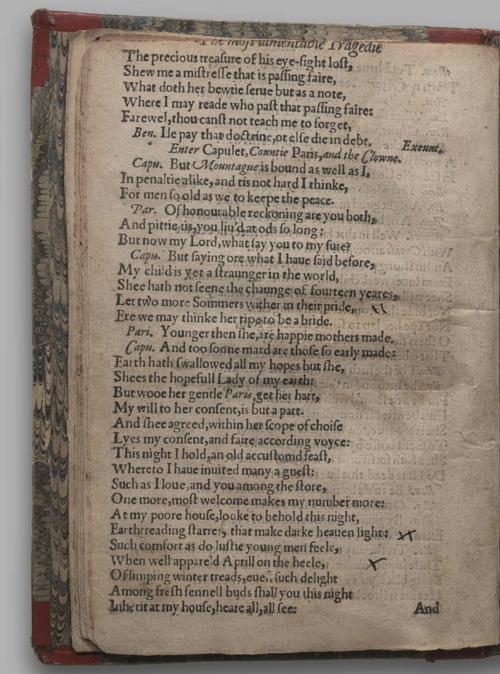 The most lamentable Tragedie
The precious treasure of his eye-sight lost,
Shew me a mistresse that is passing faire,
What doth her bewtie serue but as a note,
Where I may reade who past that passing faire:
Farewel, thou canst not teach me to forget,
Ben. Ile pay that doctrine, or else die in debt. Exeunt.
Enter Capulet, Countie Paris, and the Clowne.
Capu. But Mountague is bound as well as I,
In penaltie alike, and tis not hard I thinke,
For men so old as we to keepe the peace.
Par. Of honourable reckoning are you both,
And pittie tis, you liu'd at ods so long:
But now my Lord, what say you to my sute?
Capu. But saying ore what I haue said before,
My child is yet a straunger in the world,
Shee hath not seene the chaunge of fourteen yeares,
Let two more Sommers wither in their pride,
Ere we may thinke her ripe to be a bride.
Pari. Younger then she, are happie mothers made.
Capu. And too soone mard are those so early made:
Earth hath swallowed all my hopes but she,
Shees the hopefull Lady of my earth:
But wooe her gentle Paris, get her hart,
My will to her consent, is but a part.
And shee agreed, within her scope of choise
Lyes my consent, and faire according voyce:
This night I hold, an old accustomd feast,
Whereto I haue inuited many a guest:
Such as I loue, and you among the store,
One more, most welcome makes my number more:
At my poore house, looke to behold this night,
Earthtreading starres, that make darke heauen light:
Such comfort as do lustie young men feele,
When well appare'd Aprill on the heele,
Of limping winter treads, euen such delight
Among fresh fennell buds shall you this night
Inherit at my house, heare all, all see:
And